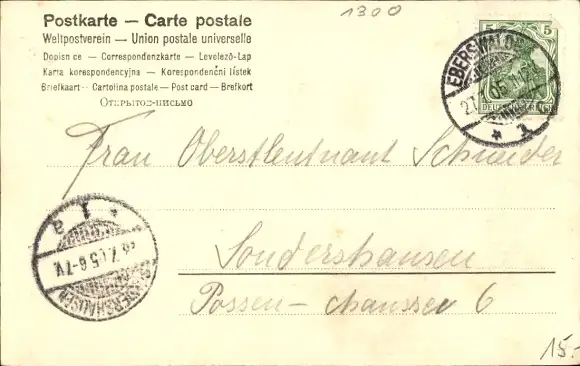 1300
Postkarte — Carte postale
Weltpostverein — Union postale universelle
Dopisnice — Correspondenzkarte — Levelező-Lap
Karta korespondencyjna — Korespondenční lístek
Briefkaart — Cartolina postale — Post card — Brefkort
Открытое-письмо
EBERSWALDE
5 5
DEUTSCHES REICH
* 1
Frau Oberstleutnant Schneider
* 1 a
7.05.6-7V.
SONDERSHAUSEN
Sondershausen
Possen-chaussee 6
15.-